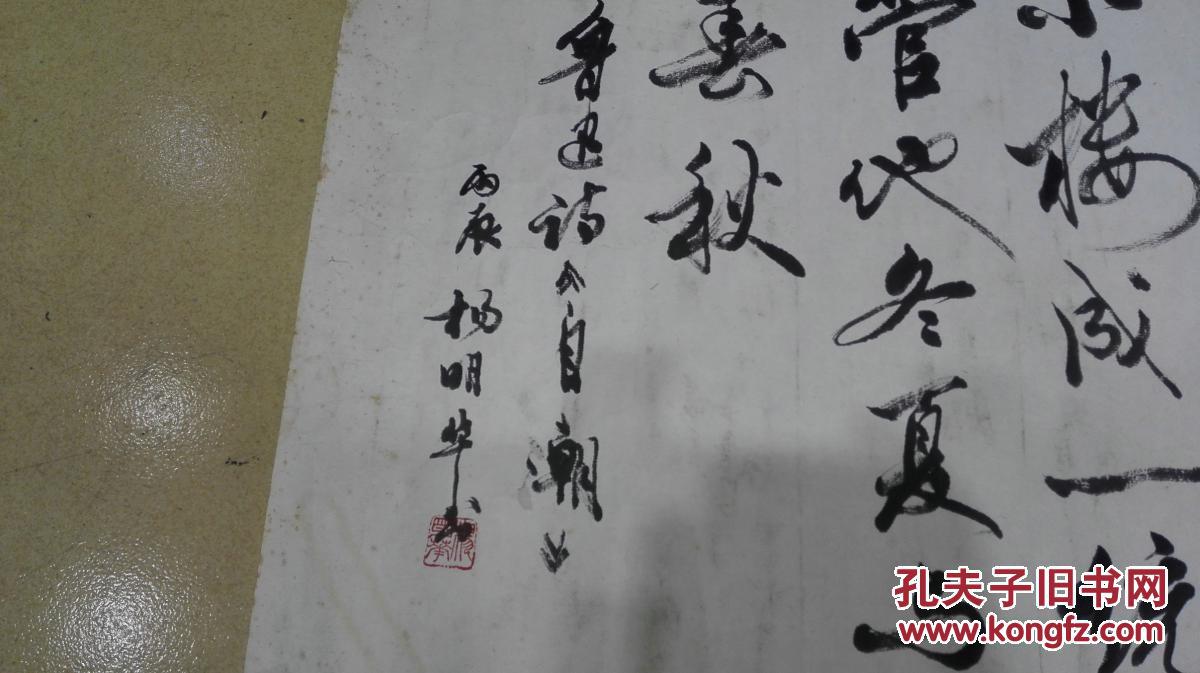 小楼成一统
管他冬夏与
春秋
鲁迅诗《自潮》
丙辰 杨明华书
孔夫子旧书网
www.kongfz.com